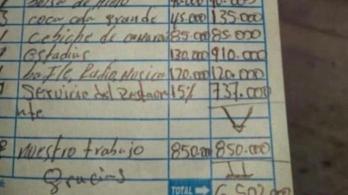 3 coca cola grande 45.000 135.000
1 cebiche de camaron 85.000 85.000
7 estadias 130.000 910.000
1 bafle, Radio, Musica 120.000 120.000
1 Servicio del Restaura 15% 737.000
nte
nuestro trabajo 850.000 850.000
Gracias
TOTAL 6.502.000